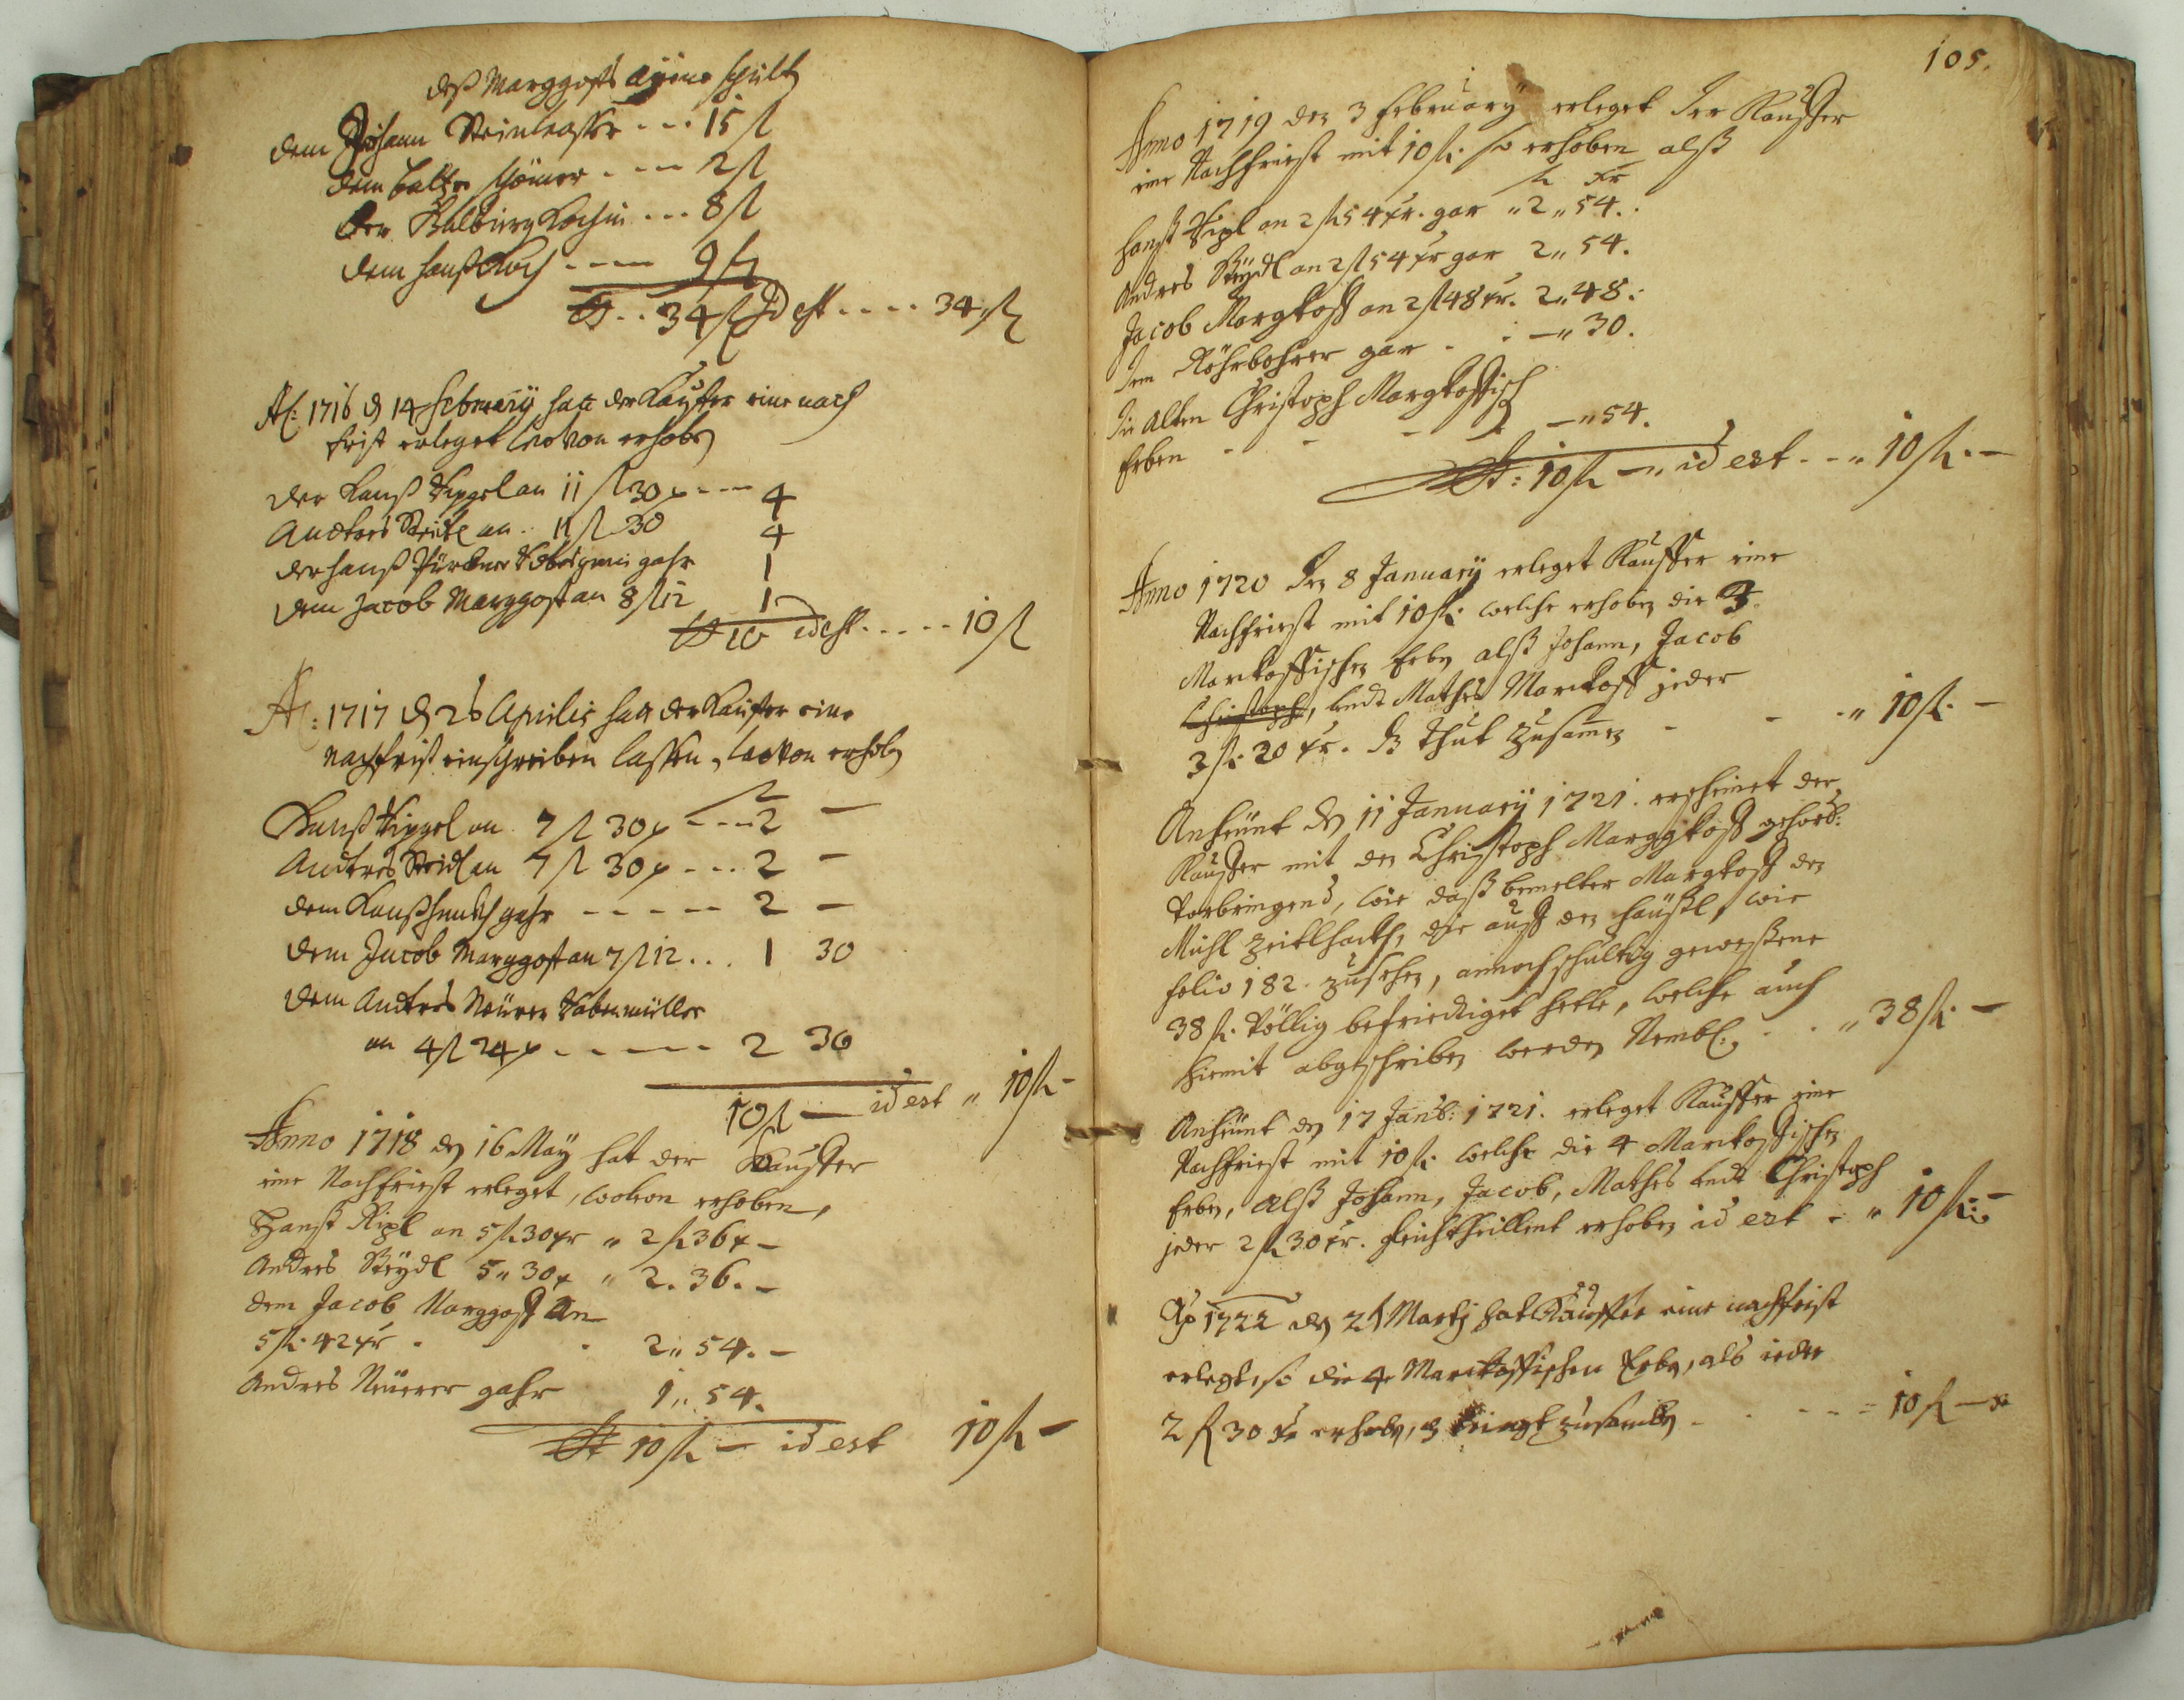 deß Marggosts Aigene schult
dem Johann Steinlasser --- 15 fl
dem balzer --- 2 fl
der Walburg Kochin ... 8 fl
dem hanß Koch ---- 9 fl
St .. 34 fl Id est .... 34 fl
Ao: 1716 d 14 february hatt der Kauffer eine nach
frist erleget wovon erhobn
der Hanß Kippel an 11 fl 30 x ---- 4
Andters Steidl an .. 11 fl 30 4
der hanß gahr 1
dem Jacob Marggost an 8 fl 12 1
St 10 id est ..... 10 fl
Ao: 1717 d 26 Aprilis hatt der Kauffer eine
nachfrist einschreiben lassen, wovon erhobn
Hanß Kippel an 7 fl 30 x ---- 2 —
Andters Steidl an 7 fl 30 x --- 2 —
dem gahr ----- 2 —
dem Jacob Marggost an 7 fl 12 ... 1 30
dem Andters Neürer
an 4 fl 24 x ------ 2 30
10 fl — id est " 10 fl —
Anno 1718 den 16 May hat der Kauffer
eine Nachfriest erleget, wovon erhoben,
Hanß Kipl an 5 fl 30 xr " 2 fl 36 x —
Andres Steydl 5 " 30 x " 2. 36. —
dem Jacob Marggost An
5 fl. 42 xr . . 2 " 54. —
Andres Neuerer gahr 1 " 54.
St 10 fl — id est 10 fl —
105.
Anno 1719 den 3 February erleget der Kauffer
eine Nachfriest mit 10 fl. so erhoben alß
fl xr
Hanß Kipl an 2 fl 54 xr. gar " 2 " 54.
Andres Steydl an 2 fl 54 xr gar 2 " 54.
Jacob Margkoss an 2 fl 48 xr. 2 " 48.
dem Röhrbohrer gar . . — " 30.
die Alten Christoph Margkossisch
Erben - - - — " 54.
St: 10 fl — " id est - - " 10 fl. —
Anno 1720 den 8 January erleget Kauffer eine
Nachfriest mit 10 fl. welche erhoben die 3.
Markossischen Erbn alß Johann, Jacob
Christoph, undt Mathes Markoss jeder
3 fl. 20 xr. thut zusamen - - - " 10 fl. —
Anheünt den 11 January 1721. erscheinet der
Kauffer mit den Christoph Marggkoss gehors:
vorbringend, wie daß bemelter Margkoss den
Michl die auff den Häußl, wie
folio 182. zusehen, annoch schultig geweßene
38 fl. völlig befriediget hette, welche auch
hiemit abgeschriben werden Nembl: . . " 38 fl. —
Anheünt den 17 Jan: 1721. erleget Kauffer eine
Nachfriest mit 10 fl. welche die 4 Markossischen
Erben, alß Johann, Jacob, Mathes undt Christoph
jeder 2 fl 30 xr. erhoben id est - " 10 fl: —
Ao 1722 den Martj hat Kauffer eine nachfrist
erlegt, so die 4 Markossischen Erbn, als ieder
2 fl 30 xr erhobn, bringt zusamben - - - - - 10 fl — x